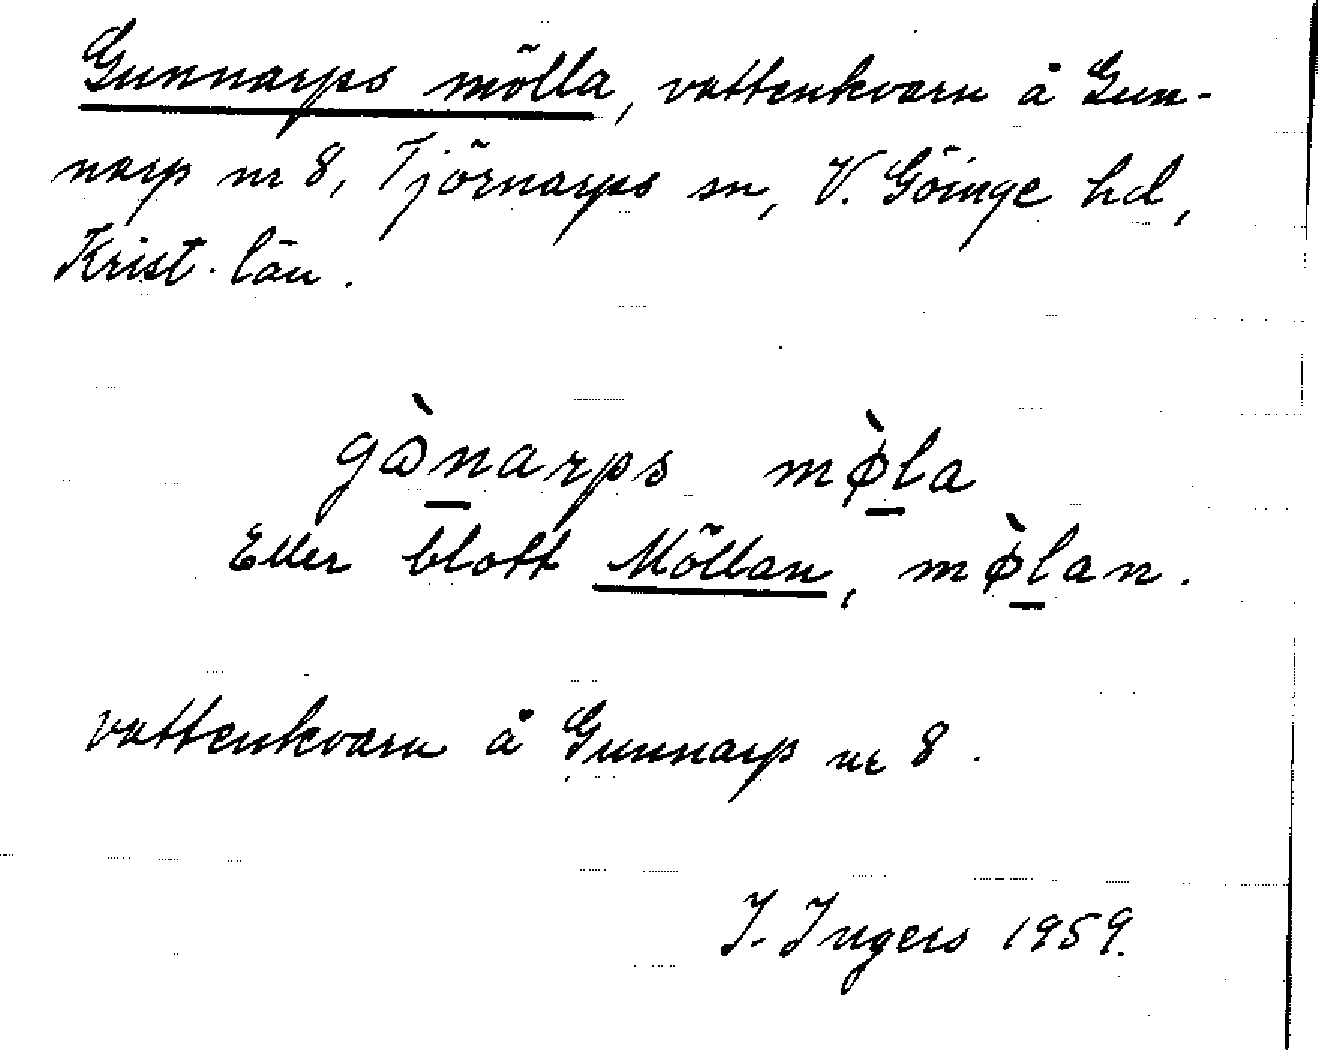 Gunnarps mölla, vattenkvarn å Gun-
narp nr 8, Tjörnarps sn, V. Göinge hd,
Krist. län.
gànarps mø̀la
Eller blott Möllan, mø̀lan.
vattenkvarn å Gunnarp nr 8.
I. Ingers 1959.